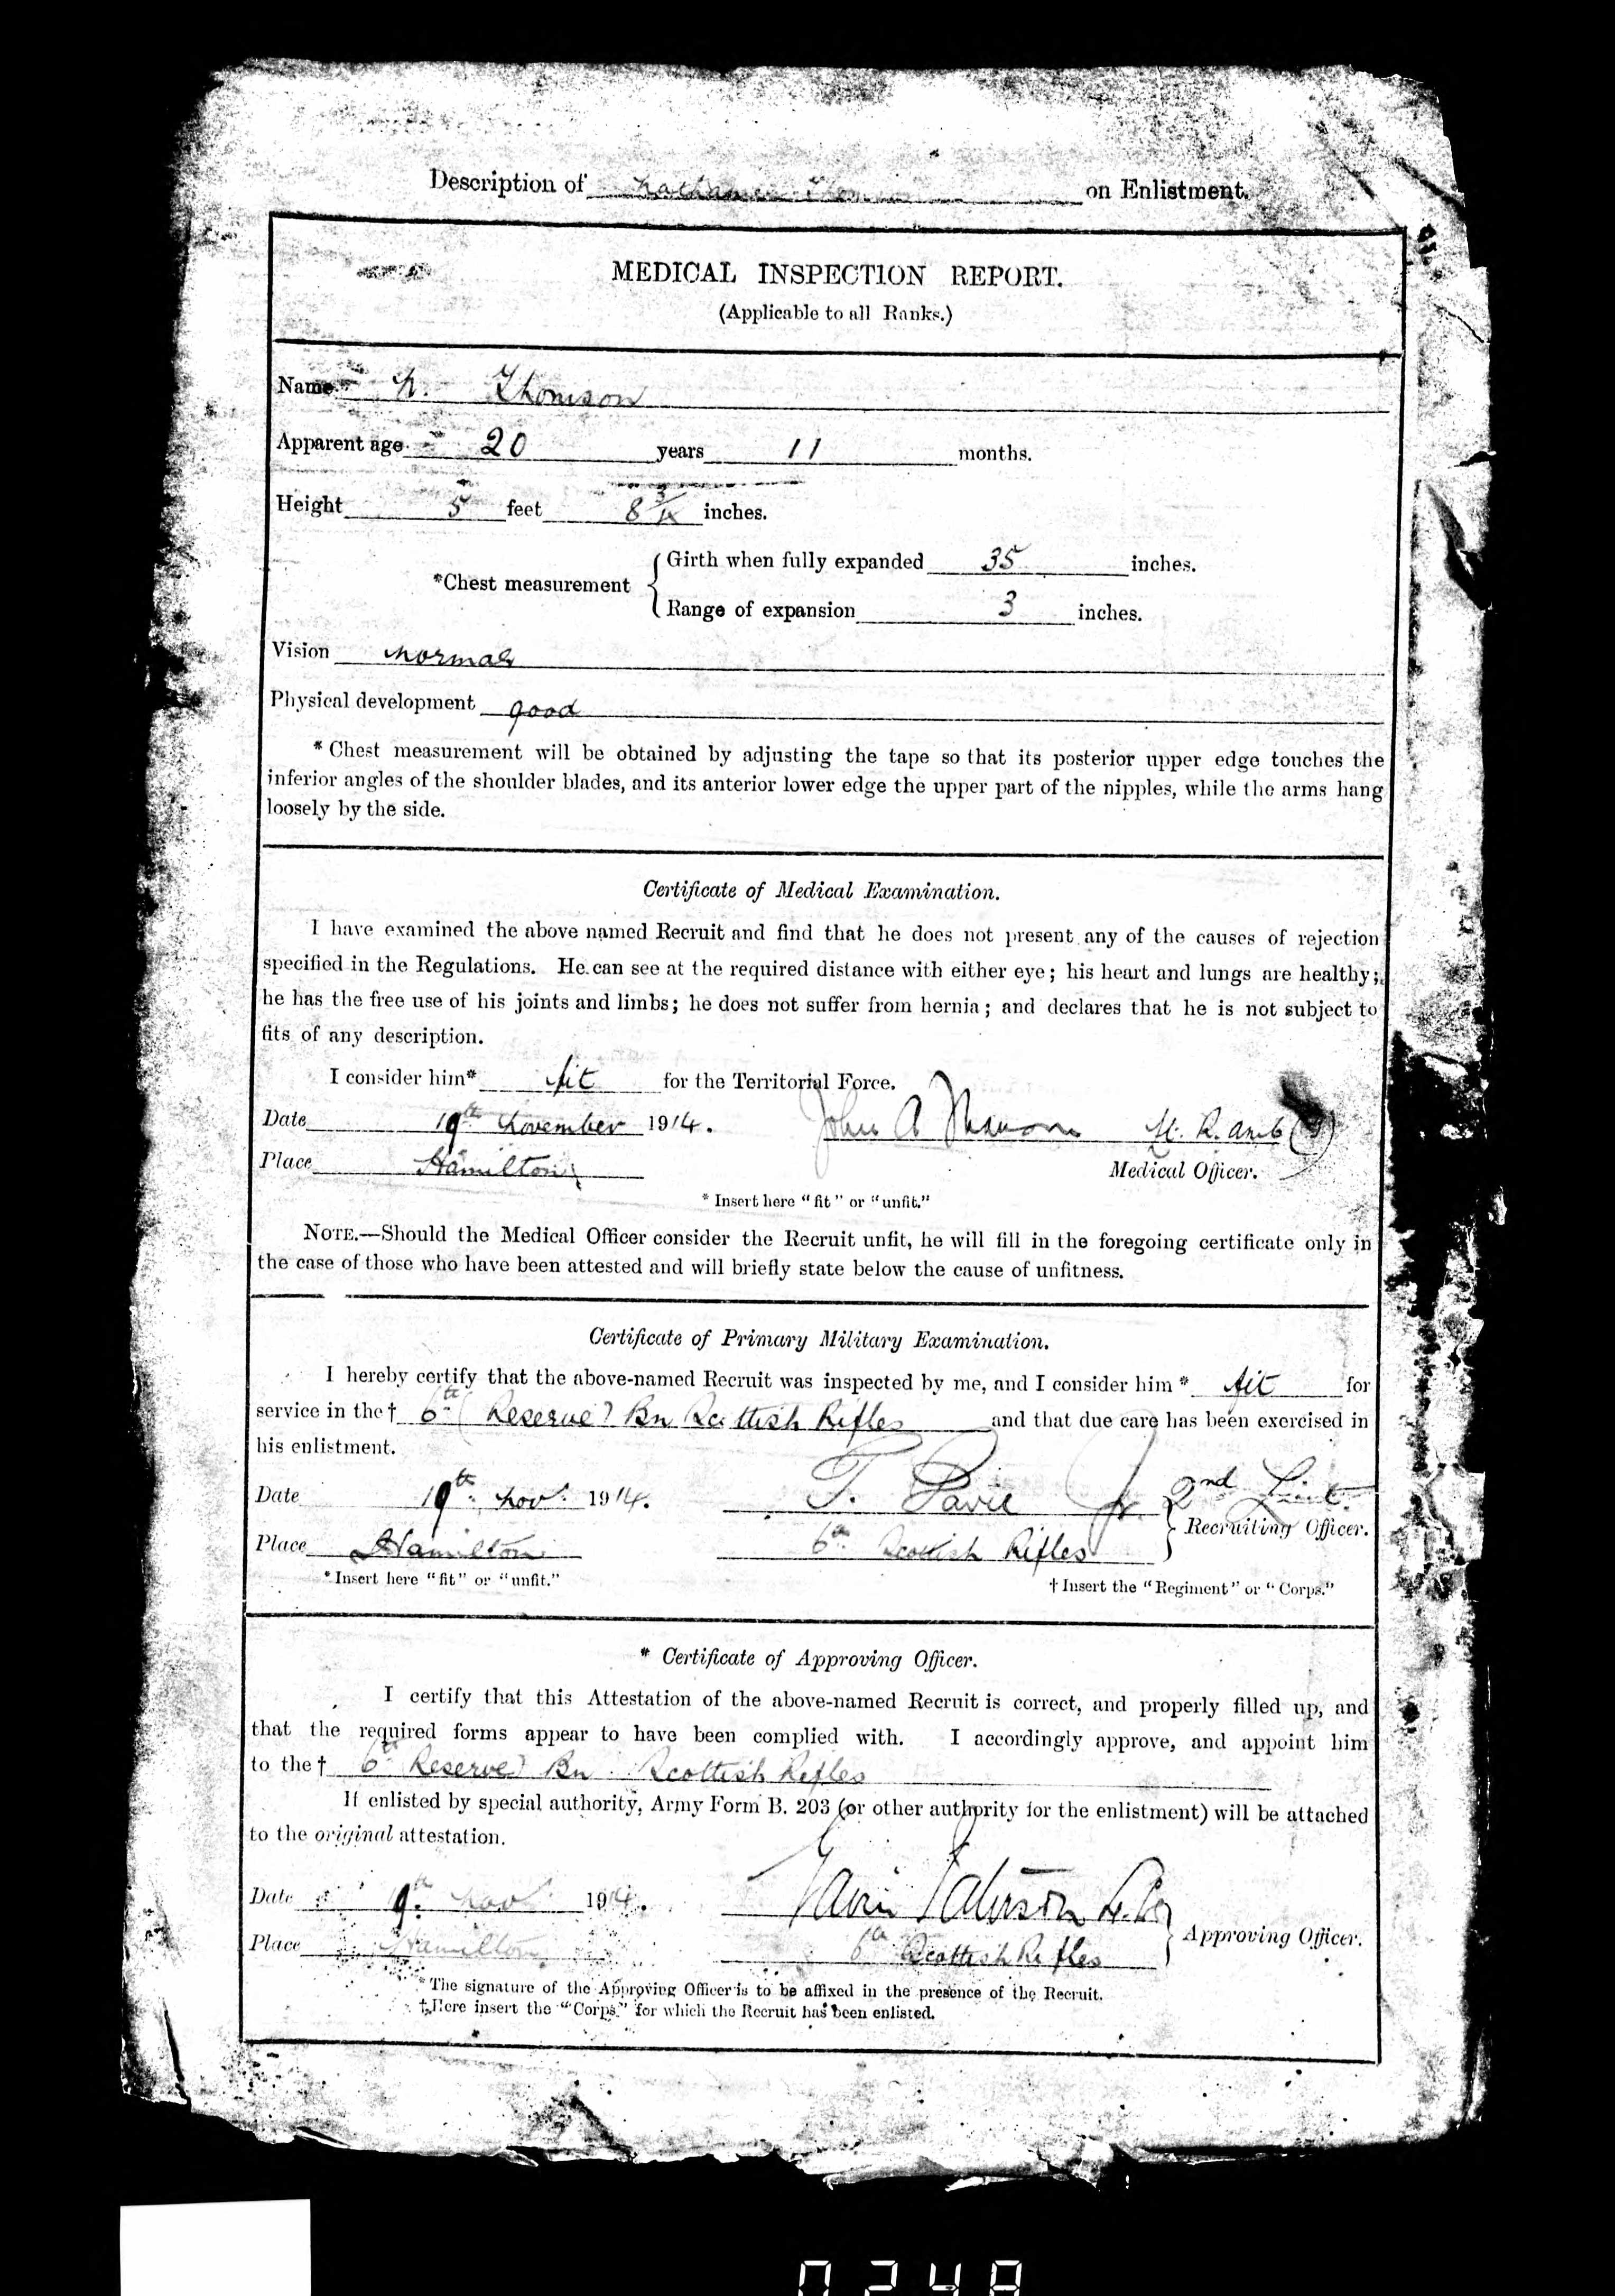 Description of on Enlistment.
MEDICAL INSPECTION REPORT.
(Applicable to all Ranks.)
Name N. Thomson
Apparent age 20 years 11 months.
Height 5 feet 8 3/4 inches.
*Chest measurement { Girth when fully expanded 35 inches.
Range of expansion 3 inches.
Vision normal
Physical development good
* Chest measurement will be obtained by adjusting the tape so that its posterior upper edge touches the
inferior angles of the shoulder blades, and its anterior lower edge the upper part of the nipples, while the arms hang
loosely by the side.
Certificate of Medical Examination.
I have examined the above named Recruit and find that he does not present any of the causes of rejection
specified in the Regulations. He can see at the required distance with either eye; his heart and lungs are healthy;
he has the free use of his joints and limbs; he does not suffer from hernia; and declares that he is not subject to
fits of any description.
I consider him* fit for the Territorial Force.
Date 19th November 1914. John A
Place Hamilton Medical Officer.
* Insert here "fit" or "unfit."
NOTE.—Should the Medical Officer consider the Recruit unfit, he will fill in the foregoing certificate only in
the case of those who have been attested and will briefly state below the cause of unfitness.
Certificate of Primary Military Examination.
I hereby certify that the above-named Recruit was inspected by me, and I consider him * fit for
service in the † 6th (Reserve) Bn Scottish Rifles and that due care has been exercised in
his enlistment.
Date 19th Nov. 1914. T. Jr. 2nd Lieut.
Recruiting Officer.
Place Hamilton 6th Scottish Rifles
* Insert here "fit" or "unfit." † Insert the "Regiment" or "Corps."
* Certificate of Approving Officer.
I certify that this Attestation of the above-named Recruit is correct, and properly filled up, and
that the required forms appear to have been complied with. I accordingly approve, and appoint him
to the † 6th Reserve) Bn Scottish Rifles
If enlisted by special authority, Army Form B. 203 (or other authority for the enlistment) will be attached
to the original attestation.
Date 19th Nov 1914.
Approving Officer.
Place Hamilton 6th Scottish Rifles
* The signature of the Approving Officer is to be affixed in the presence of the Recruit.
† Here insert the "Corps" for which the Recruit has been enlisted.
0248